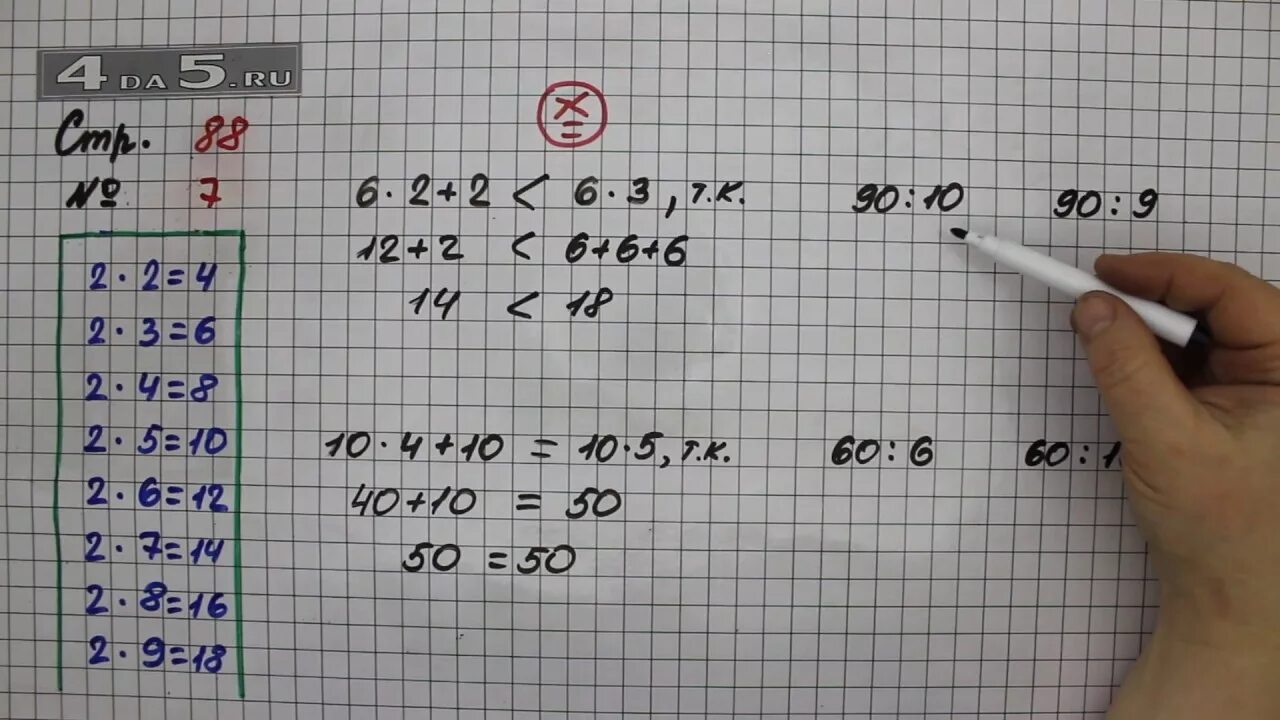 4DA5.RU
Стр. 88
№ 7
2 · 2 = 4
2 · 3 = 6
2 · 4 = 8
2 · 5 = 10
2 · 6 = 12
2 · 7 = 14
2 · 8 = 16
2 · 9 = 18
×
=
6 · 2 + 2 < 6 · 3, т.к.
12 + 2 < 6 + 6 + 6
14 < 18
10 · 4 + 10 = 10 · 5, т.к.
40 + 10 = 50
50 = 50
90 : 10 90 : 9
60 : 6 60 : 1